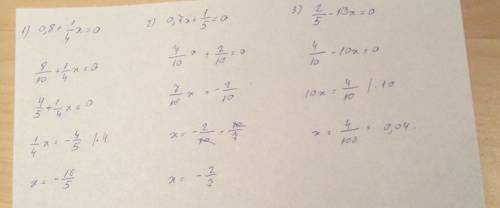 1) 0,8 + 1/4 x = 0
8/10 + 1/4 x = 0
4/5 + 1/4 x = 0
1/4 x = - 4/5 /·4
x = - 16/5
2) 0,7x + 1/5 = 0
7/10 x + 2/10 = 0
7/10 x = - 2/10
x = - 2/10 · 10/7
x = - 2/7
3) 2/5 - 10x = 0
4/10 - 10x = 0
10x = 4/10 /:10
x = 4/100 = 0,04.